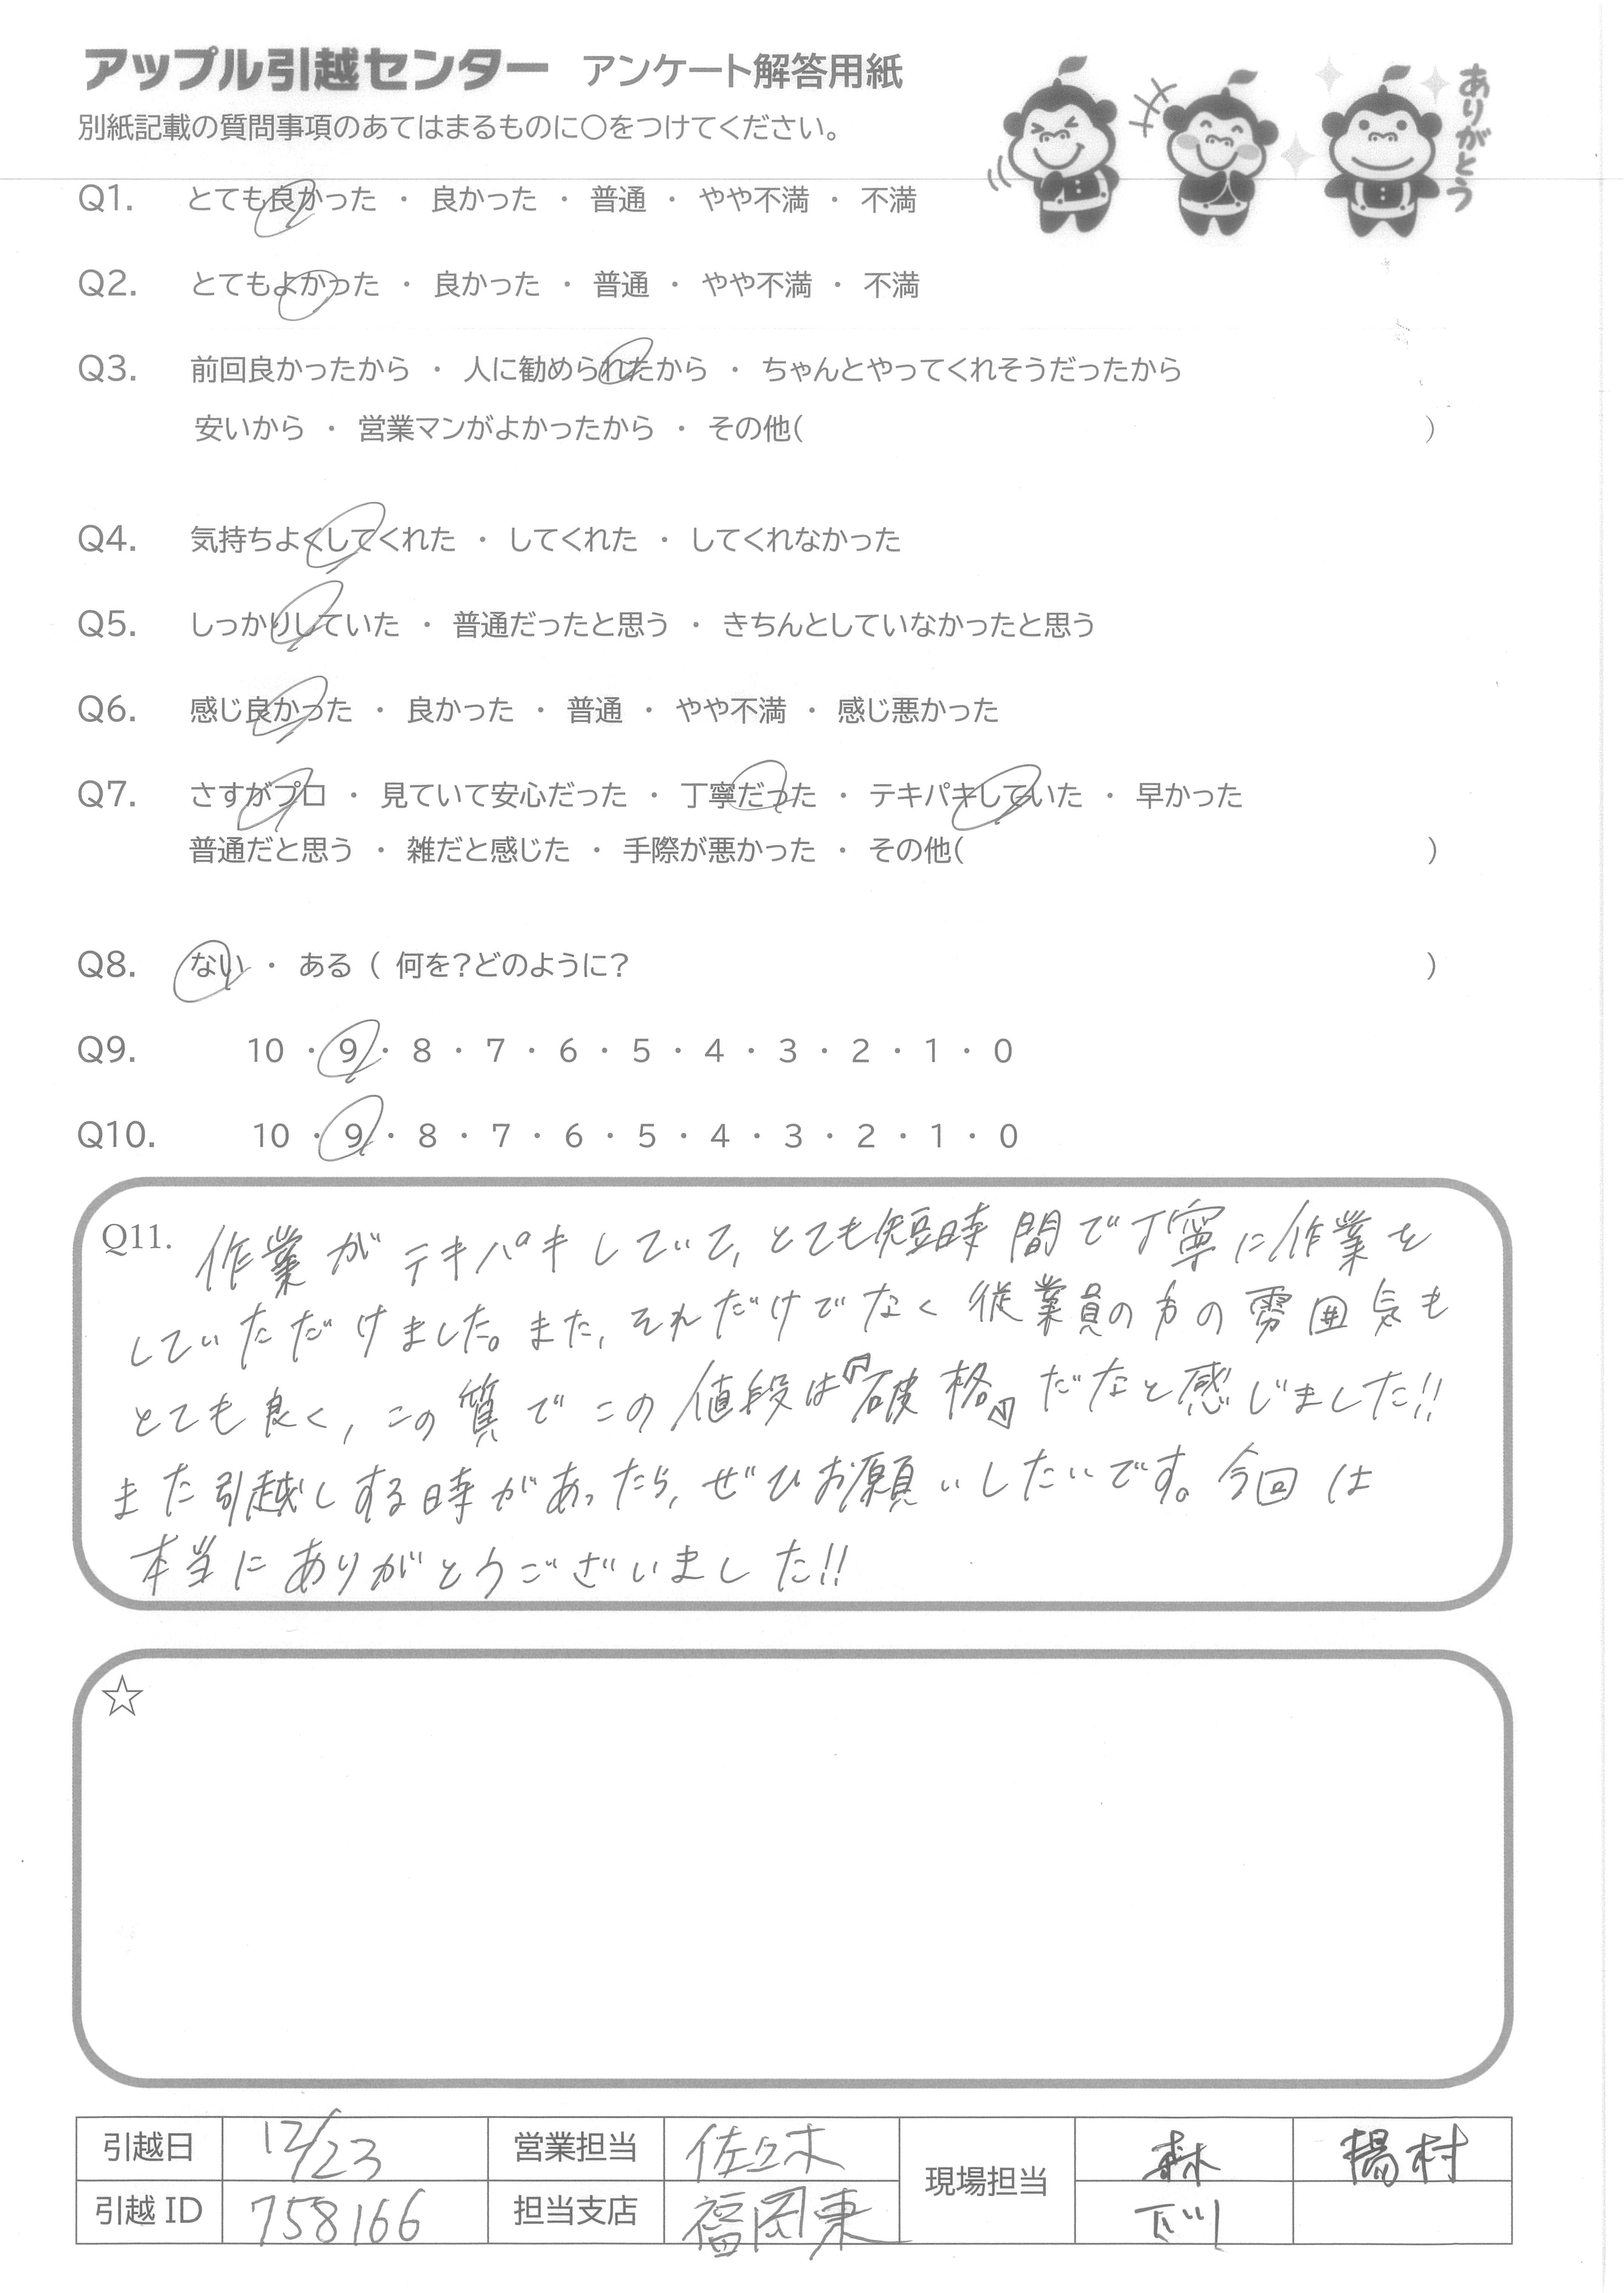 アップル引越センター アンケート解答用紙
ありがとう
別紙記載の質問事項のあてはまるものに○をつけてください。
Q1. とても良かった ・ 良かった ・ 普通 ・ やや不満 ・ 不満
Q2. とてもよかった ・ 良かった ・ 普通 ・ やや不満 ・ 不満
Q3. 前回良かったから ・ 人に勧められたから ・ ちゃんとやってくれそうだったから
安いから ・ 営業マンがよかったから ・ その他( )
Q4. 気持ちよくしてくれた ・ してくれた ・ してくれなかった
Q5. しっかりしていた ・ 普通だったと思う ・ きちんとしていなかったと思う
Q6. 感じ良かった ・ 良かった ・ 普通 ・ やや不満 ・ 感じ悪かった
Q7. さすがプロ ・ 見ていて安心だった ・ 丁寧だった ・ テキパキしていた ・ 早かった
普通だと思う ・ 雑だと感じた ・ 手際が悪かった ・ その他( )
Q8. ない ・ ある ( 何を?どのように? )
Q9. 10 ・ 9 ・ 8 ・ 7 ・ 6 ・ 5 ・ 4 ・ 3 ・ 2 ・ 1 ・ 0
Q10. 10 ・ 9 ・ 8 ・ 7 ・ 6 ・ 5 ・ 4 ・ 3 ・ 2 ・ 1 ・ 0
Q11. 作業がテキパキしていて、とても短時間で丁寧に作業を
していただけました。また、それだけでなく従業員の方の雰囲気も
とても良く、この質でこの値段は『破格』だなと感じました!!
また引越しする時があったら、ぜひお願いしたいです。今回は
本当にありがとうございました!!
☆
引越日 12/23 営業担当 佐々木 現場担当 森 楊村
引越 ID 758166 担当支店 福岡東 下川